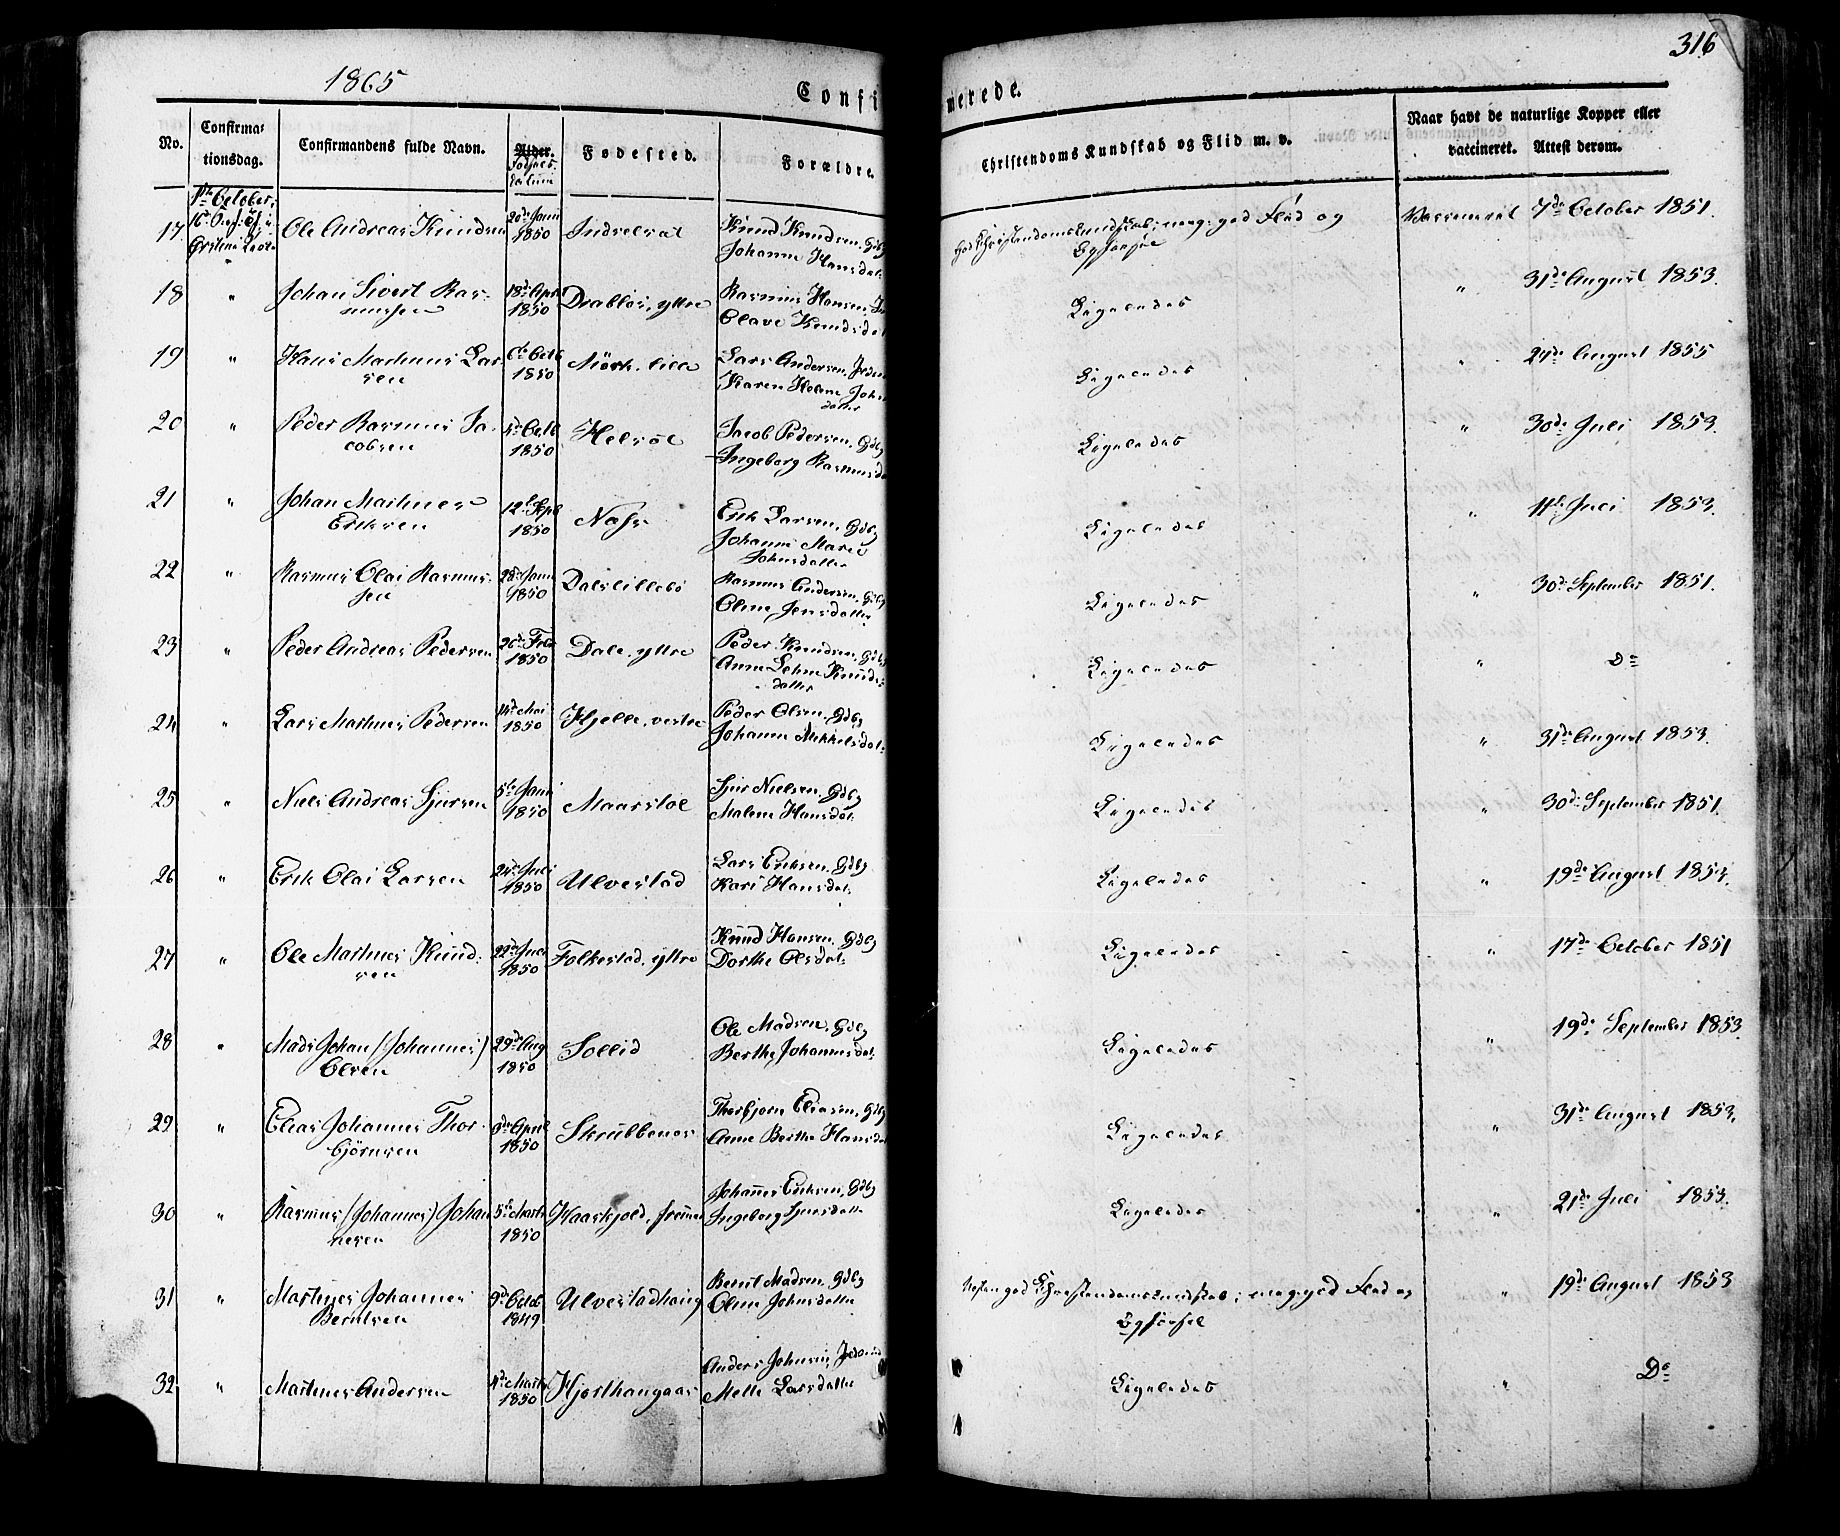 316
1865
Confirmerede.
No.
Confirma-
tionsdag.
Confirmandens fulde Navn.
Alder.
Fødsels-
datum
Fødested.
Forældre.
Christendoms Kundskab og Flid m. v.
Naar havt de naturlige Kopper eller
vaccineret. Attest derom.
1ste October,
17 Ole Andreas Knudsen 20de Juni 1850 Indselsæt Knud Knudsen, Gdbg
Johanne Hansdat: god Christendomskundskab; meg. god Flid og
Opførsel Vaccineret 7de October 1851.
18 " Johan Sivert Ras-
mussen 18de Apr 1850 Drabløs, yttre Rasmus Hansen,
Olave Knudsdat Ligeledes " 31de August 1853.
19 " Hans Martinus Lar-
sen 6te Octb 1850 Mørk, lille Lars Andersen,
Karen Helene Johns
datter Ligeledes " 24de August 1855
20 " Peder Rasmus Ja-
cobsen 4de Octb 1850 Helsøe Jacob Pedersen, Gdbg
Ingeborg Rasmusd Ligeledes " 30de Juli 1853.
21 " Johan Martines
Eriksen 12te Spt 1850 Nass Erik Larsen, Gdbg
Johanne Marie
Johnsdatter Ligeledes " 11te Juli 1853.
22 " Rasmus Olai Rasmus-
sen 28de Janu 1850 Dalslillebø Rasmus Andersen, Gdbg
Oline Jensdatter Ligeledes " 30de September 1851.
23 " Peder Andreas Pedersen 26de Feb 1850 Dale, yttre Peder Knudsen, Gdbg
Anne Lehne Knuds-
datter Ligeledes " Do
24 " Lars Martines Pedersen 14de Mai 1850 Hjelle, vestre Peder Olsen, Gdbg
Johanne Mikkelsdat: Ligeledes " 31de August 1853.
25 " Niels Andreas Sjursen 5te Juni 1850 Maarstøl Sjur Nielsen, Gdbg
Malene Hansdat: Ligeledes " 30de September 1851.
26 " Erik Olai Larsen 24de Juli 1850 Ulvestad Lars Eriksen, Gdbg
Kari Hansdat: Ligeledes " 19de August 1853.
27 " Ole Martines Knud-
sen 22de Juli 1850 Folkestad, yttre Knud Hansen, Gdbg
Dorthe Olsdat: Ligeledes " 17de October 1851
28 " Mads Johan (Johannes)
Olsen 29de Aug 1850 Sollid Ole Madsen, Gdbg
Berthe Johannesdat: Ligeledes " 19de September 1853.
29 " Elias Johannes Thor-
bjørnsen 3de April 1850 Skrubbenes Thorbjørn Eliasen, Gdbg
Anne Berthe Hansdat Ligeledes " 31de August 1853.
30 " Rasmus (Johannes) Johan
nesen 5te Marts 1850 Haaskjold, fremre Johannes Eriksen, Gdbg
Ingeborg Sjursdatter Ligeledes " 21de Juli 1853.
31 " Martines Johannes
Berntsen 9de Octob 1849 Ulvestadhaug Bernt Madsen, Gdbg
Oline Johnsdatter Næsten god Christendomskundskab; meg. god Flid og
Opførsel " 19de August 1853
32 " Martines Andersen 4de Marts 1850 Hjorthaugaas Anders Johnsen,
Mette Larsdatter Ligeledes " Do